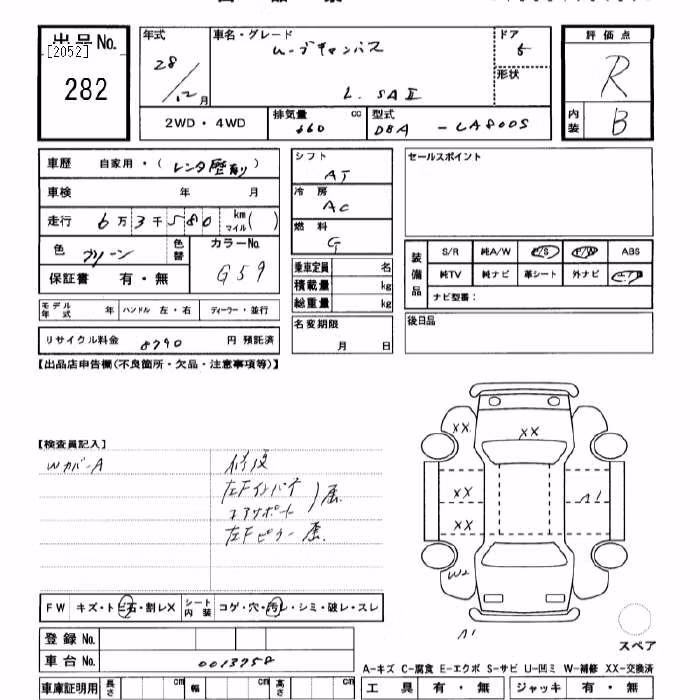 出品No.
[2052]
282
年式
28/12月
車名・グレード
ムーブキャンバス
L. SAⅡ
ドア
5
形状
評価点
R
内装
B
2WD・4WD
排気量
660
cc
型式
DBA - LA800S
車歴 自家用・(レンタ歴有り)
車検 年 月
走行 6万3千580 km マイル( )
色
グリーン
色替
カラーNo.
G59
保証書 有・無
モデル年式 年 ハンドル 左・右 ディーラー・並行
リサイクル料金 8790 円 預託済
シフト
AT
冷房
AC
燃料
G
乗車定員 名
積載量 kg
総重量 kg
名変期限
月 日
セールスポイント
装備品
S/R 純A/W P/S P/W ABS
純TV 純ナビ 革シート 外ナビ エアB
ナビ型番:
後日品
【出品店申告欄(不良箇所・欠品・注意事項等)】
【検査員記入】
WカバーA
修復
左Fインパネ
コアサポート
曲
左Fピラー 曲
XX
XX
XX
XX
A1
W2
A1
スペア
FW キズ・トビ石・割レX
シート内装 コゲ・穴・汚レ・シミ・破レ・スレ
登録No.
車台No. 0013758
車庫証明用 長さ cm 幅 cm 高さ cm
A-キズ C-腐食 E-エクボ S-サビ U-凹ミ W-補修 XX-交換済
工具 有・無 ジャッキ 有・無